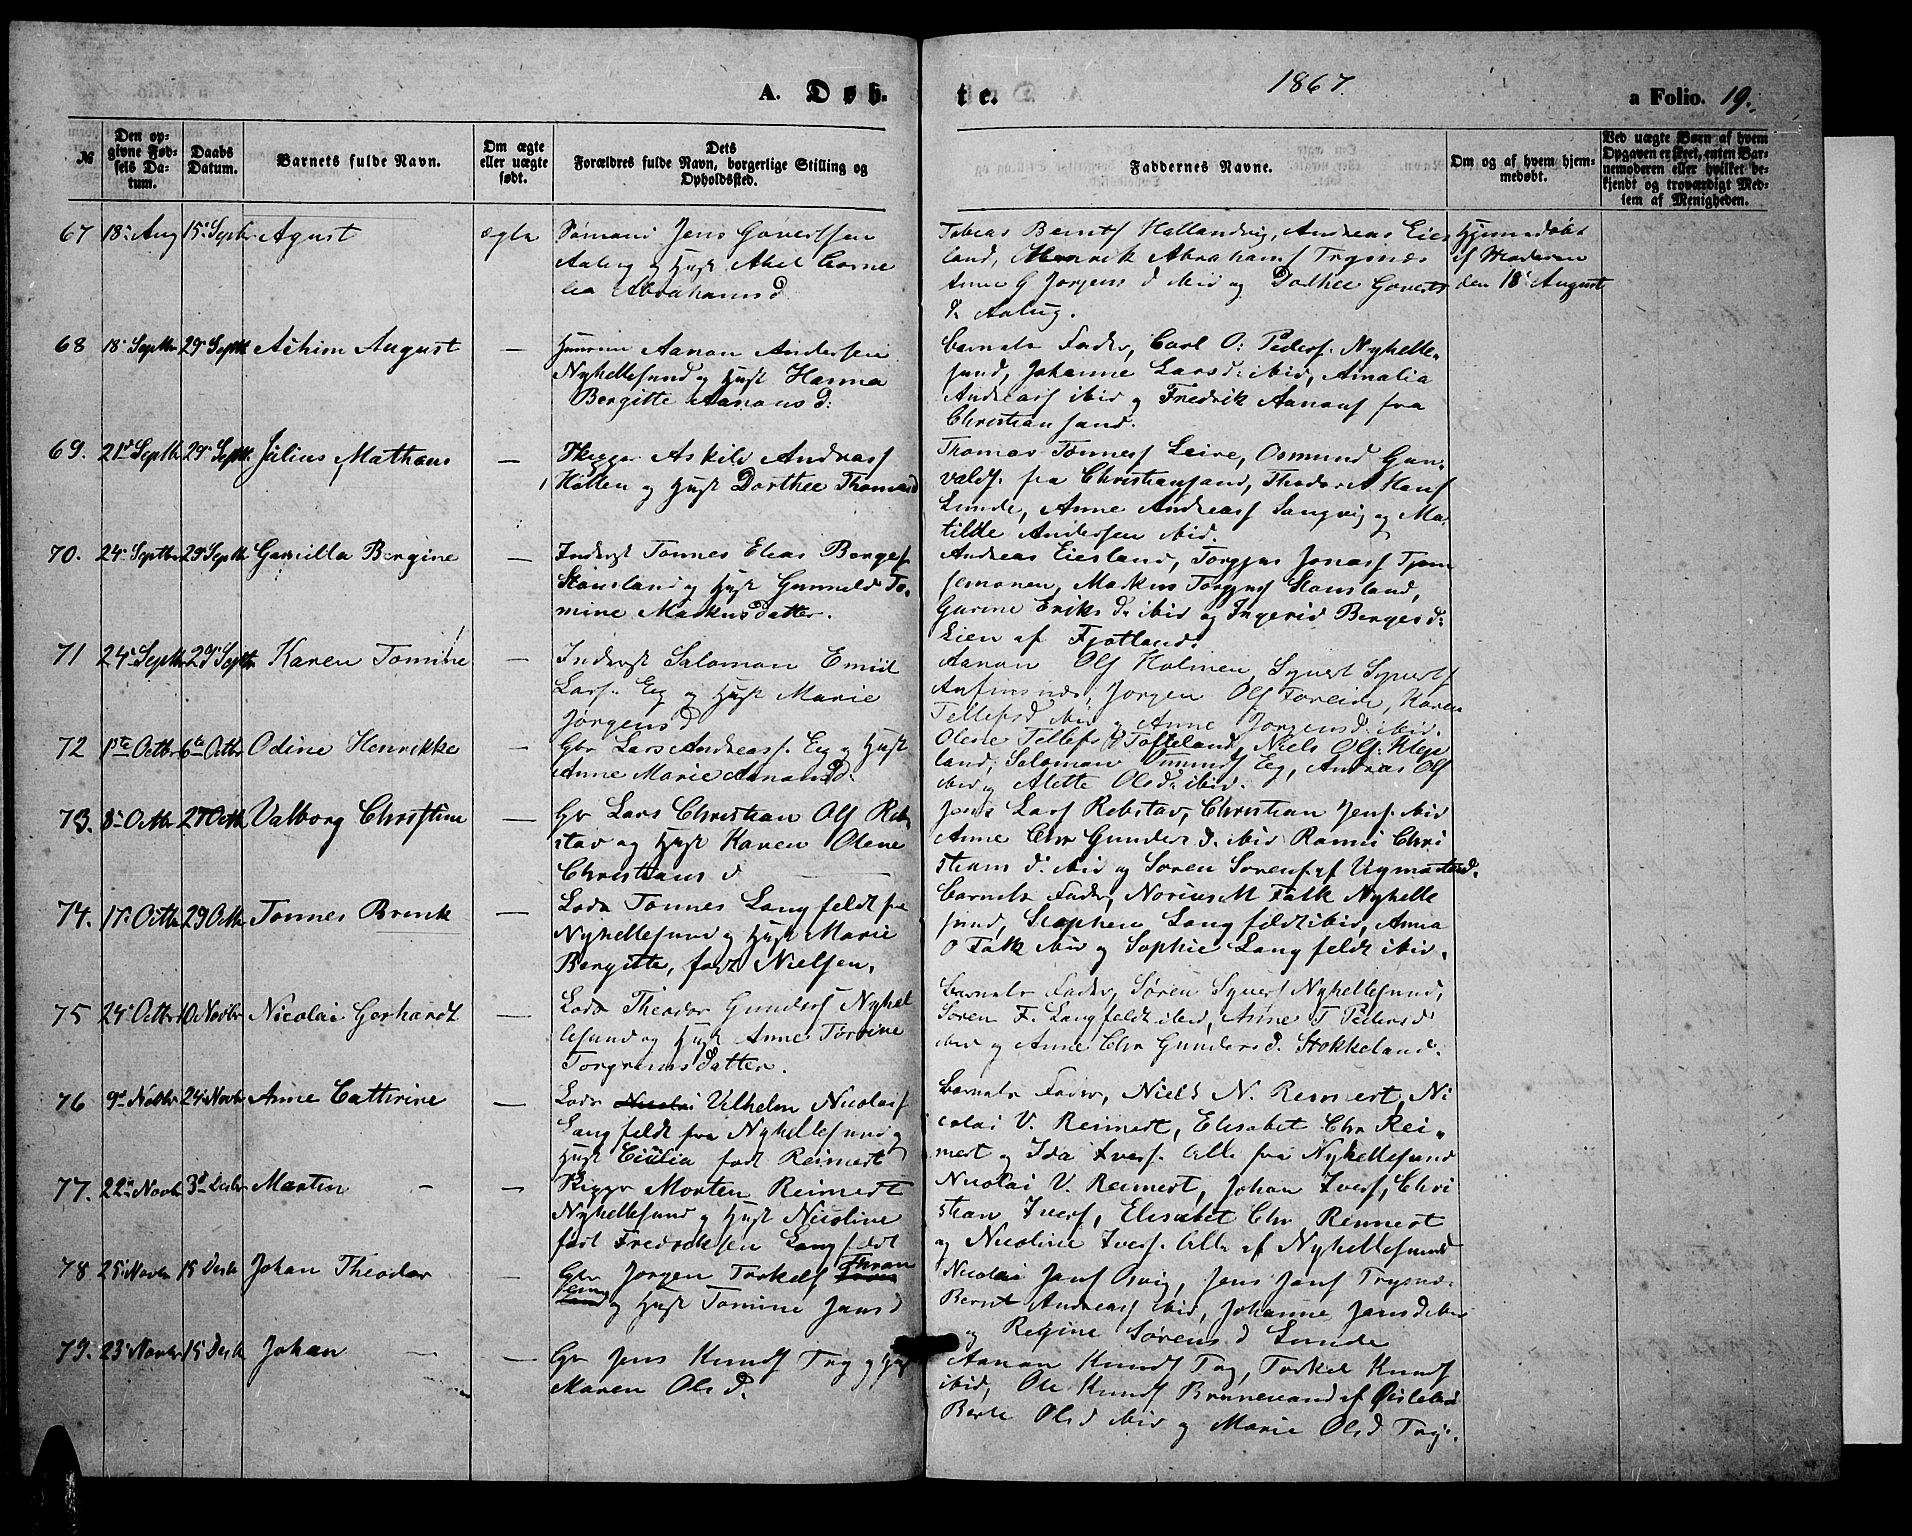 1867.
A. Døb.
te.
a Folio. 19.
№
Den opgivne Fødsels Datum.
Daabs Datum.
Barnets fulde Navn.
Om ægte eller uægte født.
Dets Forældres fulde Navn, borgerlige Stilling og Opholdssted.
Faddernes Navne.
Om og af hvem hjemmedøbt.
Ved uægte Børn af hvem Opgaven er skeet, enten Barnemoderen eller hvilket bekjendt og troværdigt Medlem af Menigheden.
67 18. Aug 15. Septbr Agust ægte
Sømand Jens Govertsen
Aaberg og Hust Abel Corne
lia Abrahamsd
Tobias Berntf Hallandvig, Andreas Eies
land, Henrik Abrahamf Trysnæs
Anne G Jorgens d ibid og Dorthee Goverts
d.
Hjemmedøbt
af Moderen
den 18. August
68 18. Septbr 29. Septbr Achim August —
Aanon Andersen
Nyhellesund og Hust Hanna
Bergitte Aanonsd:
Barnets Fader, Carl O: Pedersf. Nyhelle-
sund, Johanne Larsd. ibid, Amalia
Andreasf ibid og Fredrik Aanonf fra
Christiansand.
69. 21d Septbr 29. Septbr Julius Mathæus —
Askild Andreasf
Holten og Hust Dorthee Thomasd
Thomas Tønnesf Leire, Osmund Gun-
valdf. fra Christiansand, Theodor Hansf
Lunde, Anne Andreasf Langvig og Ma-
tilde Andersen ibid.
70. 24. Septbr 29 Septbr Gamilla Bergine —
Inderst Tønnes Elias Bergesf
Stousland og Hust Gunuld To-
mine Markusdatter.
Andreas Eiesland, Torgjus Jonasf Tjom
semonen, Markus Torgjusf Stousland,
Gurine Eriks d. ibid og Ingerid Bergesd:
Lien af Fjotland.
71 24. Septbr 29. Septbr Karen Tomine —
Inderst Salomon Emiil
Larsf. Eeg og Hust Marie
Jørgensd
Aanon Olf Holmen, Syvert Syvertsf
Anfinsnæs, Jorgen Olf Toreim, Karen
Tellefsd ibid og Anne Jorgensd. ibid.
72 1ste Octbr 6te Octbr Odine Henrikke —
Gbr Lars Andreasf. Eeg og Hust
Anne Marie Aanonsd.
Olene Tellefsd Tofteland, Niels Olf. Klep
land, Salomon Eeg, Andreas Olf
ibid og Alette Olsd. ibid.
73. 8. Octbr 27 Octbr Valborg Christine —
Gbr Lars Christian Olf Reb
stad og Hust Karen Olene
Christians d
Jens Larf Rebstad, Christian Jensf. ibid
Anne Chr Gunders d. ibid Chri
stians d. ibid og Soren Sorensf. af
74. 17. Octbr 29 Octbr Tønnes Brink —
Lods Tønnes Langfeldt fra
Nyhellesund og Hust Marie
Bergitte, født Nielsen.
Barnets Fader, Norius M Falk Nyhelle
sund, Stephen Langfeldt ibid, Anna
O Falk ibid og Sophie Langfeldt ibid.
75 24. Octbr 10 Novbr Nicolai Gerhardt —
Lods Theodor Gundersf Nyhel
lesund og Hust Anne Torine
Torgrimsdatter.
Barnets Fader, Søren Syversf Nyhellesund,
Soren F. Langfeldt ibid, Anne T Pedersd
ibid og Anne Chr Gundersd. Stokkeland.
76 9de Novbr 24. Novbr Anne Cathrine —
Lods Nicolai Vilhelm Nicolaif
Langfeldt fra Nyhellesund og
Hust født Reimert
Barnets Fader, Niels N. Reimert, Ni
colai V. Reimert, Elisabet Chr Rei-
mert og Ida Iversf. Alle fra Nyhellesund
77. 22. Novbr 3d Decbr Martin — —
Rigger Morten Reimert
Nyhellesund og Hust Nicoline
født Fredriksen Langfeldt
Nicolai V. Reimert, Johan Iversf, Chri
stian Iversf, Elisabet Chr Reimert
og Nicoline Iversf. Alle af Nyhellesund
78 25. Novbr 15 Decbr Johan Theodor —
Gbr Jorgen Torkelsf
og Hust Tomine Jansd
Nicolai Janf Jens Janf Trysnæs
Bernt Andreasf ibid, Johanne Jansd ibid
og Regine Sørens d Lunde
79. 23. Novbr 15 Decbr Johan — —
Gbr Jens Knudf Try og Hust
Maren Ols d.
Aanon Knudf Try, Torkel Knudf
ibid, Ole Knudf af Øislebø
Berte Olsd ibid og Marie Olsd Try.